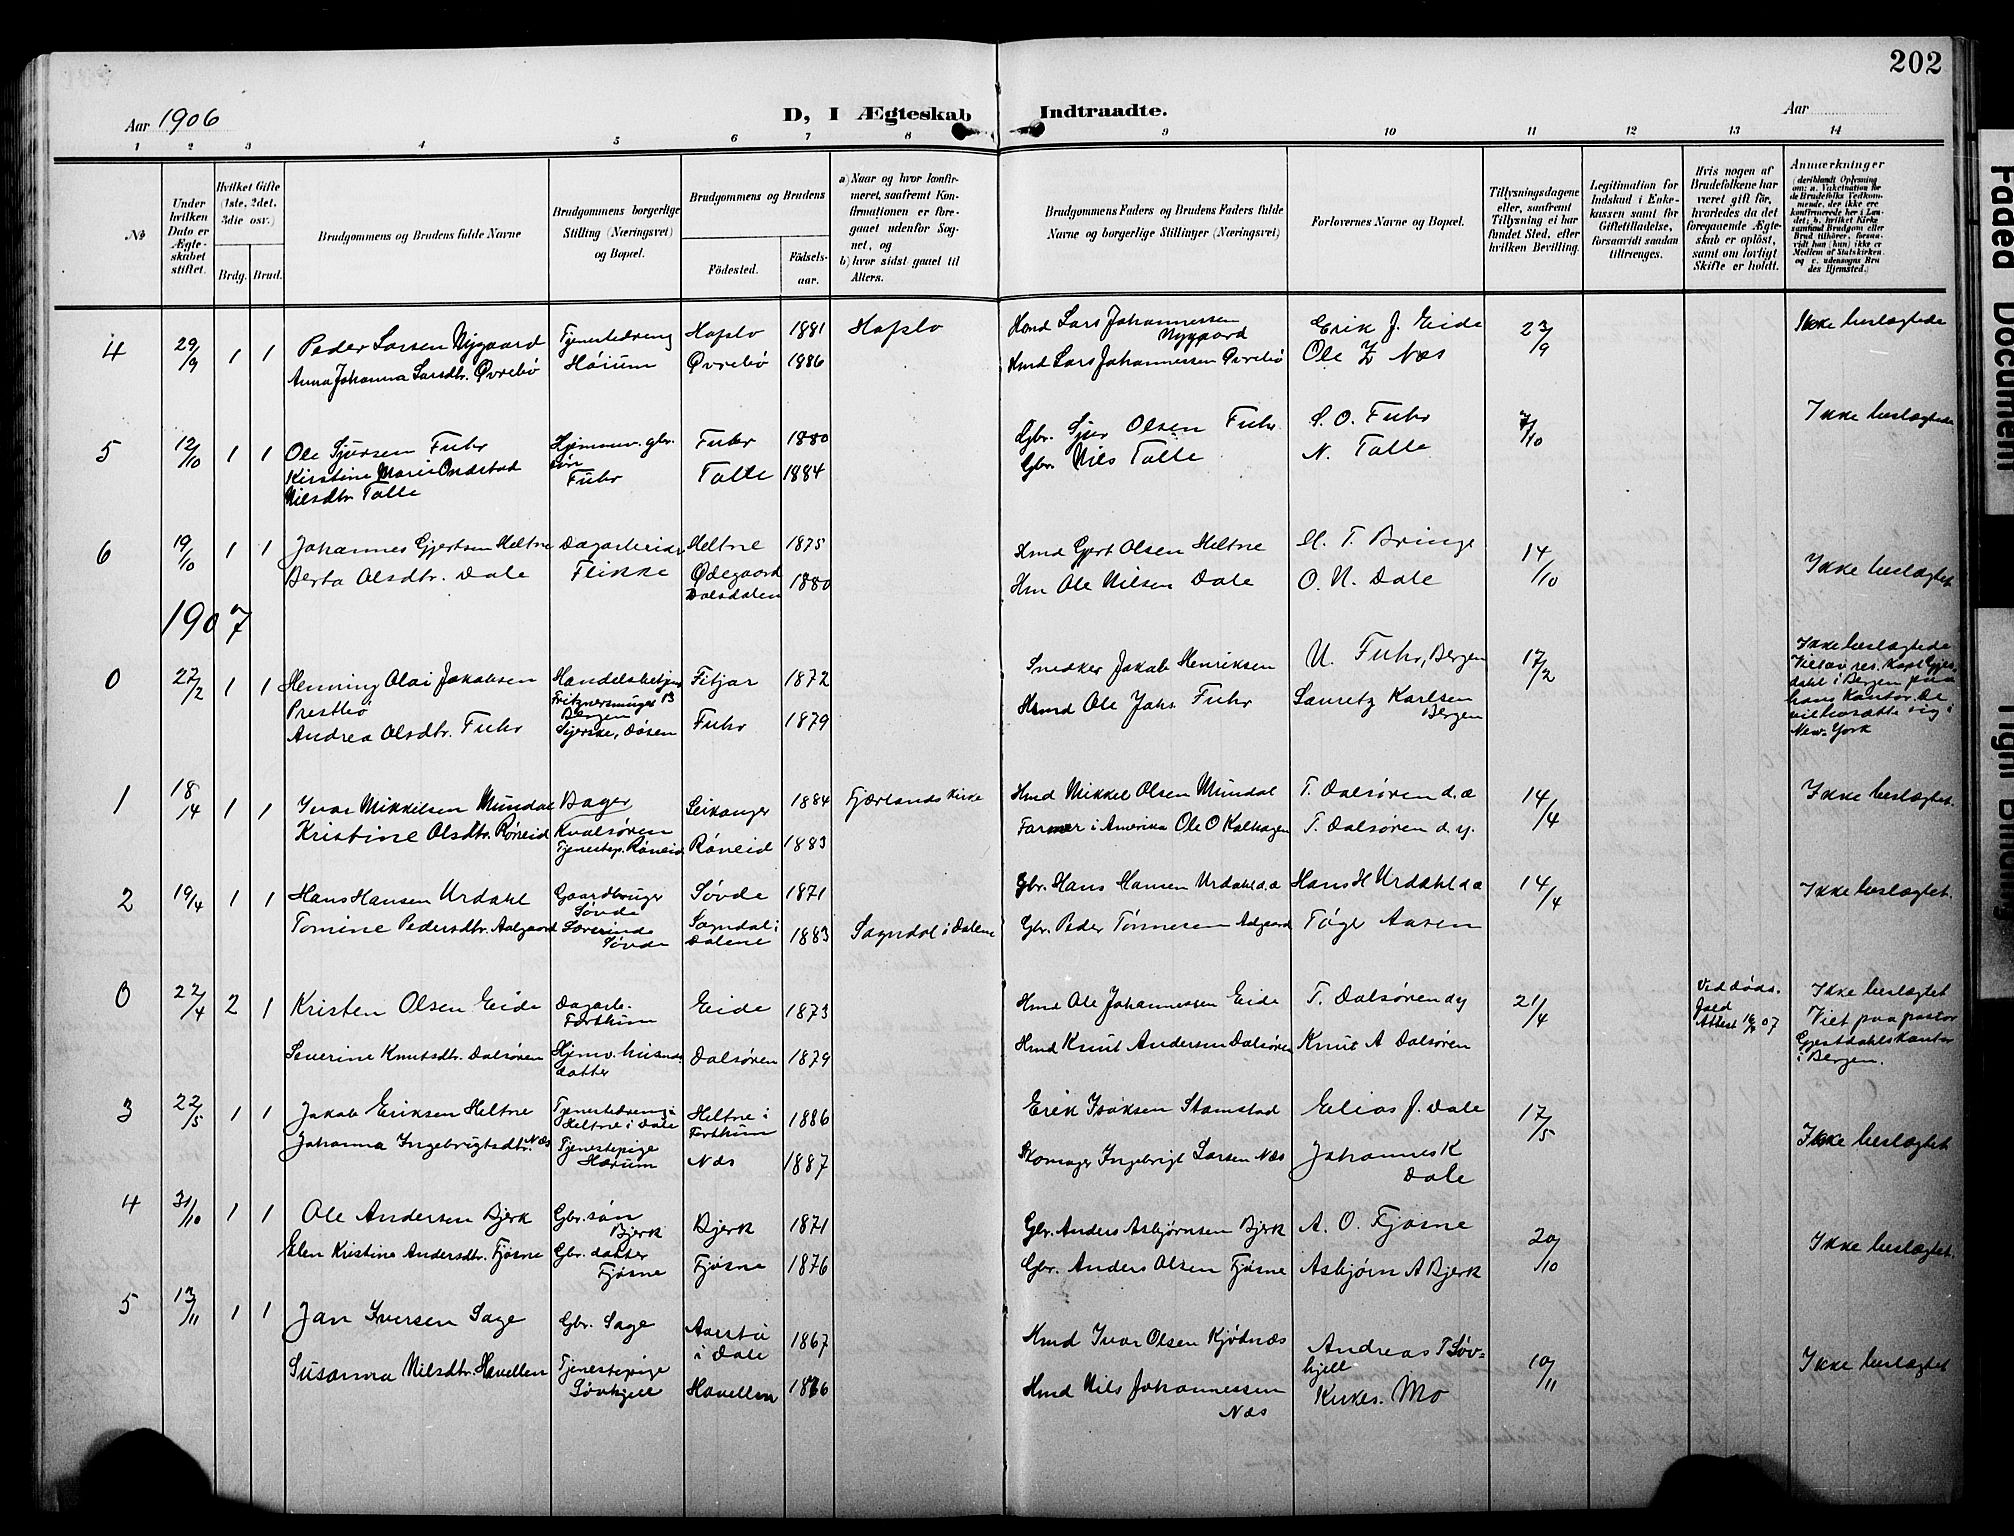 202
Aar 1906
D, I Ægteskab Indtraadte.
Aar
1 2 3 4 5 6 7 8 9 10 11 12 13 14
No
Under hvilken Dato er Ægteskabet stiftet.
Hvilket Gifte (1ste, 2det, 3die osv.)
Brdg. Brud.
Brudgommens og Brudens fulde Navne
Brudgommens borgerlige Stilling (Næringsvei) og Bopæl.
Brudgommens og Brudens
Födested. Födselsaar.
a) Naar og hvor konfirmeret, saafremt Konfirmationen er foregaaet udenfor Sognet, og
b) hvor sidst gaaet til Alters.
Brudgommens Faders og Brudens Faders fulde Navne og borgerlige Stillinger (Næringsvei)
Forlovernes Navne og Bopæl.
Tillysningsdagene eller, saafremt Tillysning ei har fundet Sted, efter hvilken Bevilling.
Legitimation for Indskud i Enkekassen samt for Giftetilladelse, forsaavidt saadan tiltrænges.
Hvis nogen af Brudefolkene har været gift før, hvorledes da det foregaaende Ægteskab er oplöst, samt om lovligt Skifte er holdt.
Anmærkninger
4 29/9 1 1 Peder Larsen Nygaard Tjenestedreng Hafslo 1881 Hafslo Hmd Lars Johannessen Nygaard Erik J. Eide 23/9 Ikke beslægtede
Anna Johanna Larsdtr. Øvrebø Høium Øvrebø 1886 Hmd Lars Johannessen Øvrebø Ole Næs
5 12/10 1 1 Ole Sjursen Fuhr Hjemmev. gbr. søn Fuhr 1880 Gbr. Sjur Olsen Fuhr. S. O. Fuhr 7/10 Ikke beslægtede
Kirstine Marie Nilsdtr Talle Fuhr Talle 1884 Gbr. Nils Talle N. Talle
6 19/10 1 1 Johannes Gjertsen Heltne Dagarbeider Heltne 1875 Hmd Gjert Olsen Heltne T. Bringe 14/10 Ikke beslægtet
Berta Olsdtr. Dale Flikke Ødegaard Dalsdalen 1880 Hm Ole Nilsen Dale O. N. Dale
1907
0 27/2 1 1 Henning Olai Jakobsen Prestbø Handelsbetjent Bergen Fitjar 1872 Snedker Jakob Henriksen Fuhr, Bergen 17/2 Ikke beslægtede
Viet av res. Kapl Gjesdahl i Bergen paa hans Kantor. De vil bosætte sig i New-York
Andrea Olsdtr. Fuhr Sjerske, Døsen Fuhr 1879 Hmd Ole Johs Fuhr Lauritz Karlsen Bergen
1 18/4 1 1 Ivar Mikkelsen Mundal Bager Kvalsøren Leikanger 1884 Fjærlands Kirke Hmd Mikkel Olsen Mundal T. Dalsøren d.æ 14/4 Ikke beslægtet.
Kristine Olsdtr. Røneid Tjenestep. Røneid Røneid 1883 Farmer i Amerika Ole O Kalhagen T. Dalsøren d. y.
2 19/4 1 1 Hans Hansen Urdahl Gaardbruger Søvde Søvde 1871 Gbr. Hans Hansen Urdahl d.æ Hans H Urdahl d.æ 14/4 Ikke beslægtet.
Tomine Pedersdtr. Aalgaard Søvde Sogndal i Dalene 1883 Sogndal i Dalene Gbr. Peder Tønnesen Aalgaard Tøge Aasen
0 22/4 2 1 Kristen Olsen Eide Dagarb. Forthun Eide 1873 Hmd Ole Johannessen Eide T. Dalsøren d y 21/4 Ved døds-
fald Attest 07
Ikke beslægtet Viet paa pastor Gjesdahls Kantor i Bergen.
Severine Knutsdtr. Dalsøren Hjemv. husm. datter Dalsøren 1879 Hmd Knut Andersen Dalsøren Knut A Dalsøren
3 22/5 1 1 Jakob Eriksen Heltne Tjenestedreng Heltne i Dale Heltne i Forthun 1886 Erik Isaksen Stamstad Elias J. Dale 17/5 Ikke beslægtet
Johanna Ingebrigtsdtr. Næs Tjenestepige Hærum Næs 1887 Skomager Ingebrigt Larsen Næs Johannes K Dale
4 31/10 1 1 Ole Andersen Bjerk Gbr. søn Bjerk Bjerk 1871 Gbr. Anders Asbjørnsen Bjerk A. O. Fjøsne 20/10 Ikke beslægtet.
Elen Kristine Andersdtr. Fjøsne Gbr. datter Fjøsne Fjøsne 1876 Gbr. Anders Olsen Fjøsne Asbjørn A Bjerk
5 13/11 1 1 Jan Iversen Sage Gbr. Sage i Dale 1867 Hmd Ivar Olsen Kjødnæs Andreas T Søvhjell 10/11 Ikke beslægtet
Susanna Nilsdtr. Havellen Tjenestepige Søvhjell Havellen Hmd Nils Johannessen Næs Kirkes. Mo
Faded Document
Tight Binding